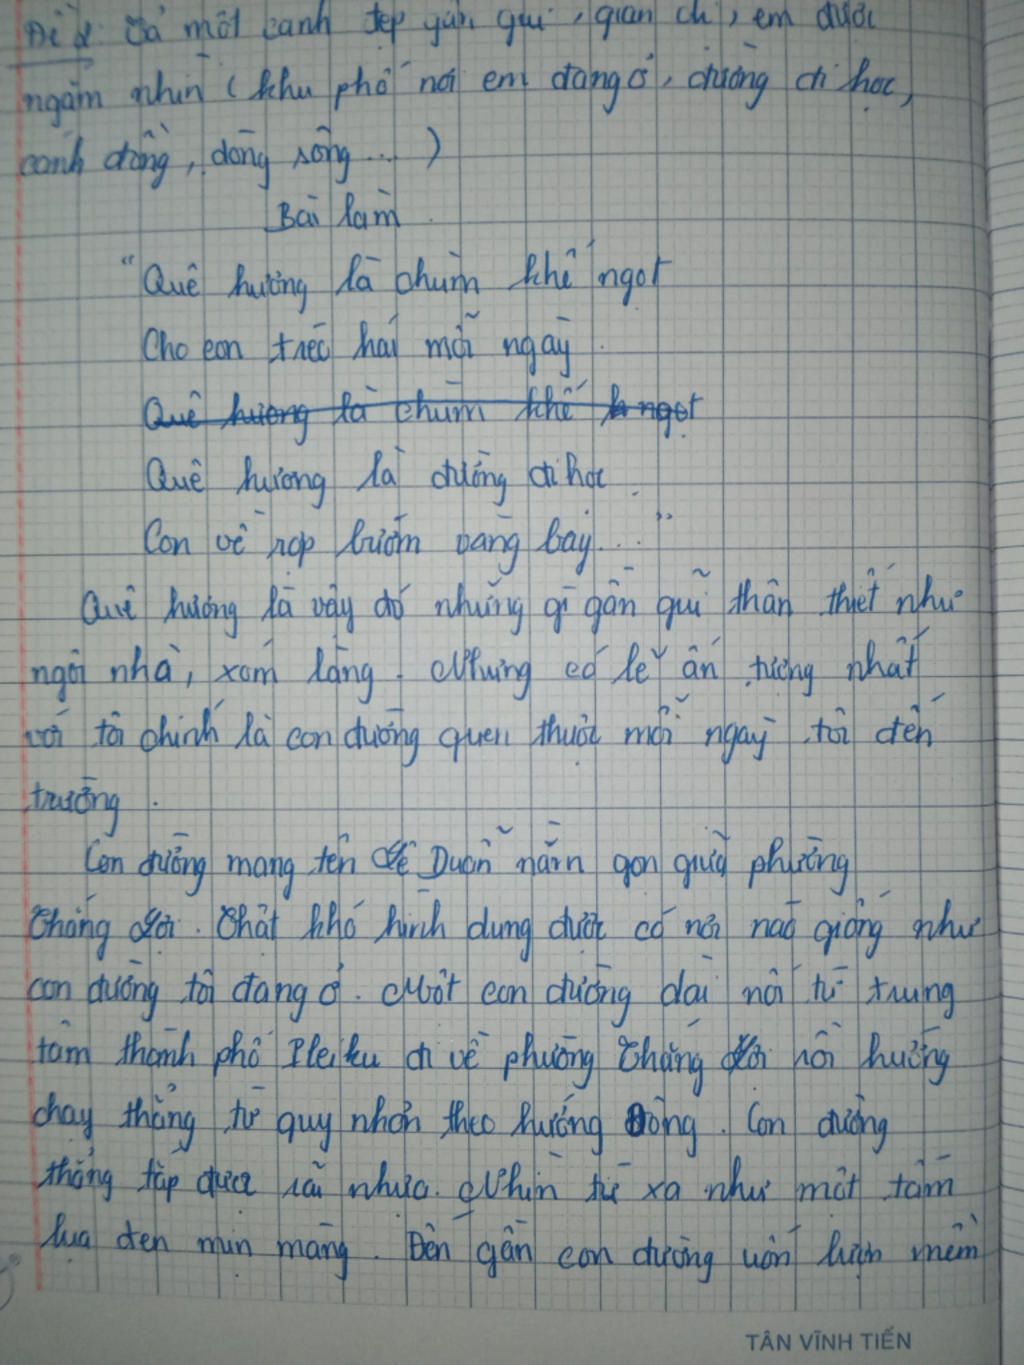 Đề 2: Tả một cảnh đẹp gần gũi, giản dị, em được
ngắm nhìn (khu phố nơi em đang ở, đường đi học,
cánh đồng, dòng sông...)
Bài làm
"Quê hương là chùm khế ngọt
Cho con trèo hái mỗi ngày.
Quê hương là chùm khế ngọt
Quê hương là đường đi học
Con về rợp bướm vàng bay..."
Quê hương là vậy đó những gì gần gũi thân thiết như
ngôi nhà, xóm làng. Nhưng có lẽ ấn tượng nhất
với tôi chính là con đường quen thuộc mỗi ngày tôi đến
trường.
Con đường mang tên Lê Duẩn nằm gọn giữa phường
Thắng Lợi. Thật khó hình dung được có nơi nào giống như
con đường tôi đang ở. Một con đường dài nối từ trung
tâm thành phố Pleiku đi về phường Thắng Lợi rồi hướng
chạy thẳng từ quy nhơn theo hướng Đông. Con đường
thẳng tắp được rải nhựa. Nhìn từ xa như một tấm
lụa đen mịn màng. Đến gần con đường uốn lượn mềm
TÂN VĨNH TIẾN